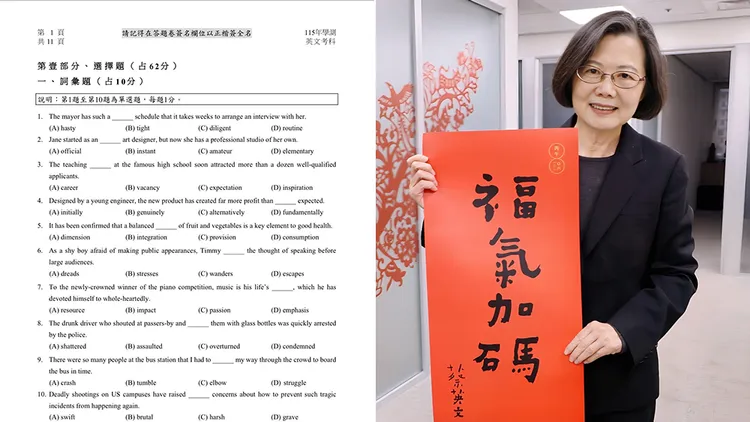 第 1 頁
共 11 頁
請記得在答題卷簽名欄位以正楷簽全名
115年學測
英文考科
第壹部分、選擇題（占62分）
一、詞彙題（占10分）
說明：第1題至第10題為單選題，每題1分。
1. The mayor has such a ______ schedule that it takes weeks to arrange an interview with her.
(A) hasty (B) tight (C) diligent (D) routine
2. Jane started as an ______ art designer, but now she has a professional studio of her own.
(A) official (B) instant (C) amateur (D) elementary
3. The teaching ______ at the famous high school soon attracted more than a dozen well-qualified
applicants.
(A) career (B) vacancy (C) expectation (D) inspiration
4. Designed by a young engineer, the new product has created far more profit than ______ expected.
(A) initially (B) genuinely (C) alternatively (D) fundamentally
5. It has been confirmed that a balanced ______ of fruit and vegetables is a key element to good health.
(A) dimension (B) integration (C) provision (D) consumption
6. As a shy boy afraid of making public appearances, Timmy ______ the thought of speaking before
large audiences.
(A) dreads (B) stresses (C) wanders (D) escapes
7. To the newly-crowned winner of the piano competition, music is his life's ______, which he has
devoted himself to whole-heartedly.
(A) resource (B) impact (C) passion (D) emphasis
8. The drunk driver who shouted at passers-by and ______ them with glass bottles was quickly arrested
by the police.
(A) shattered (B) assaulted (C) overturned (D) condemned
9. There were so many people at the bus station that I had to ______ my way through the crowd to board
the bus in time.
(A) crash (B) tumble (C) elbow (D) struggle
10. Deadly shootings on US campuses have raised ______ concerns about how to prevent such tragic
incidents from happening again.
(A) swift (B) brutal (C) harsh (D) grave
福氣加碼
蔡英文